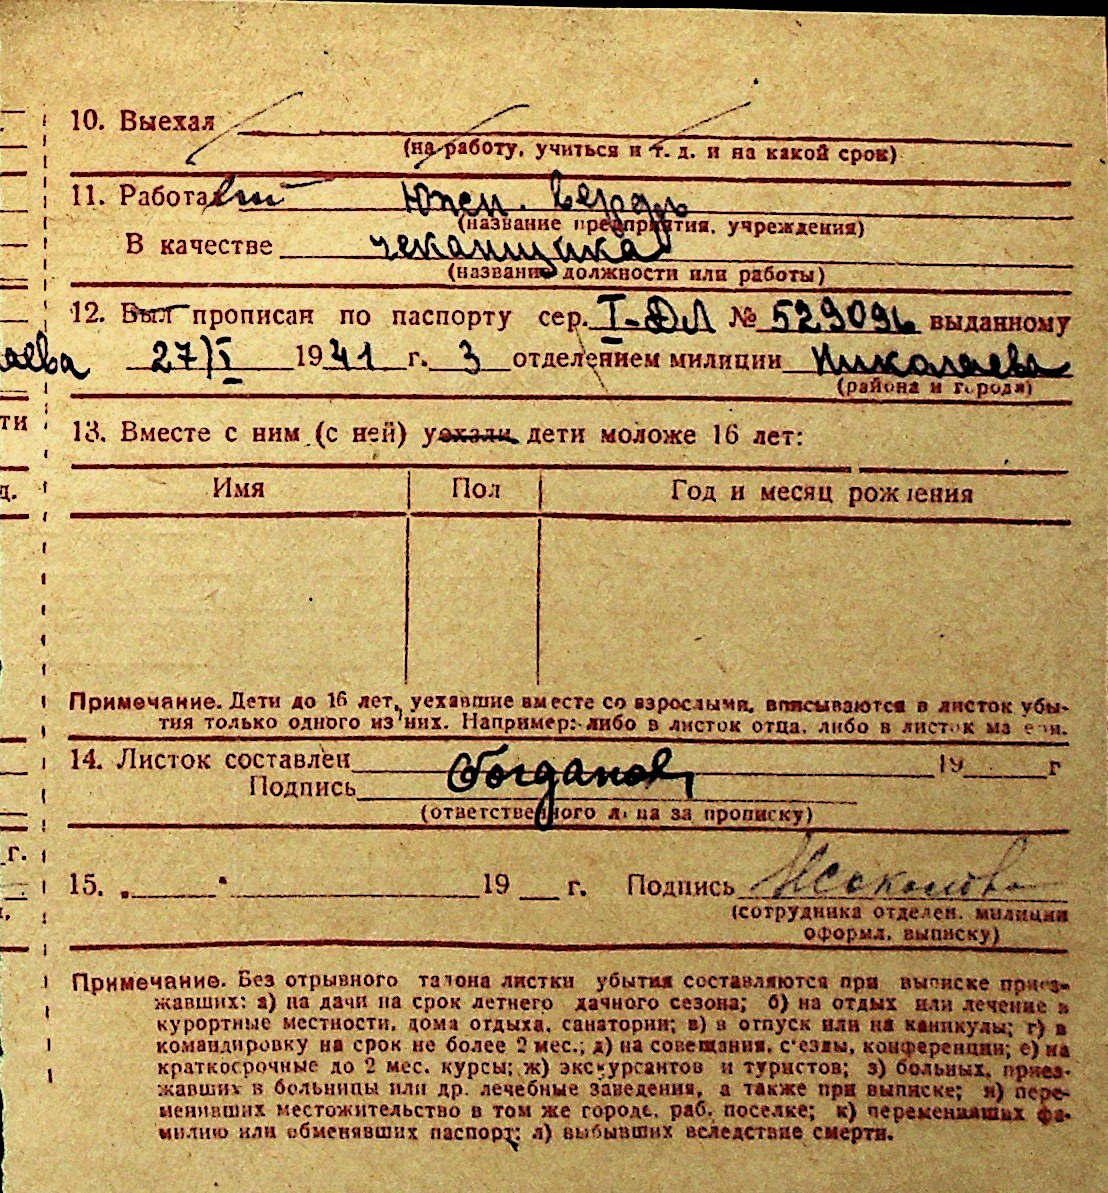 10. Выехал
(на работу, учиться и т. д. и на какой срок)
11. Работа
(название предприятия, учреждения)
В качестве чеканщика
(название должности или работы)
12. Был прописан по паспорту сер. I-ДЛ № 529096 выданному
аева 27/I 1941 г. 3 отделением милиции Николаева
(района и города)
ти 13. Вместе с ним (с ней) уехали дети моложе 16 лет:
д. Имя Пол Год и месяц рождения
Примечание. Дети до 16 лет, уехавшие вместе со взрослыми, вписываются в листок убы-
тия только одного из них. Например: либо в листок отца, либо в листок матери.
14. Листок составлен 19 г
Подпись Богданов
(ответственного лица за прописку)
г. 15. „ " 19 г. Подпись
(сотрудника отделен. милиции
оформл. выписку)
Примечание. Без отрывного талона листки убытия составляются при выписке приез-
жавших: а) на дачи на срок летнего дачного сезона; б) на отдых или лечение в
курортные местности, дома отдыха, санатории; в) в отпуск или на каникулы; г) в
командировку на срок не более 2 мес.; д) на совещания, с'езды, конференции; е) на
краткосрочные до 2 мес. курсы; ж) экскурсантов и туристов; з) больных, приез-
жавших в больницы или др. лечебные заведения, а также при выписке; и) пере-
менивших местожительство в том же городе, раб. поселке; к) переменивших фа-
милию или обменявших паспорт; л) выбывших вследствие смерти.